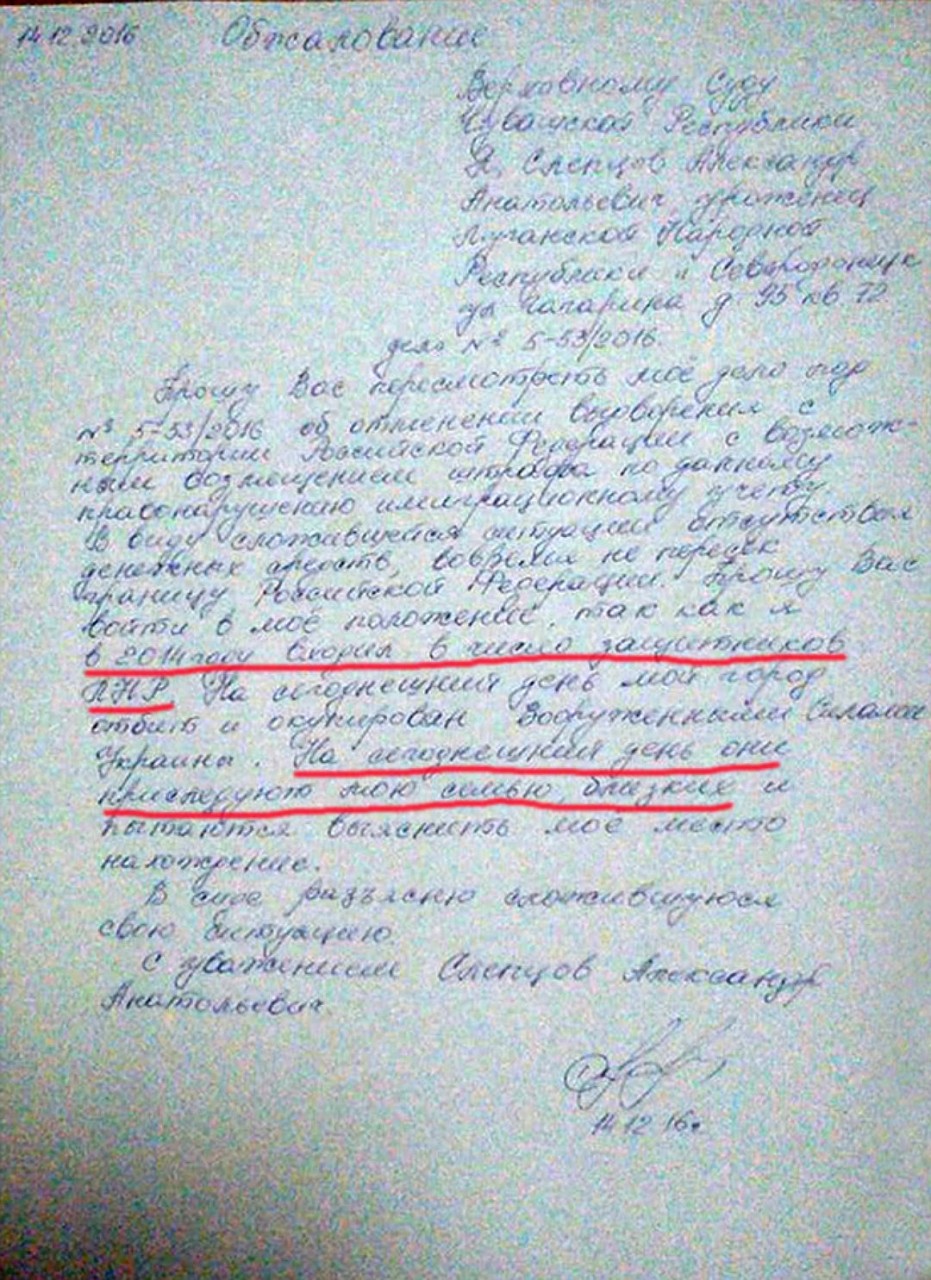 14.12.2016 Обжалование
Верховному Суду
Чувашской Республики
Я, Слепцов Александр
Анатольевич уроженец
Луганской Народной
Республики г Северодонецк
ул Гагарина д 95 кв 72
дело № 5-53/2016.
Прошу Вас пересмотреть моё дело под
№ 5-53/2016 об отменении выдворения с
территории Российской Федерации с возмож-
ным возмещением штрафа по данному
правонарушению имиграционному учету.
В виду сложившейся ситуации отсутствия
денежных средств, вовремя не пересек
границу Российской Федерации. Прошу Вас
войти в моё положение, так как я
в 2014 году входил в число защитников
ЛНР. На сегоднешний день мой город
отбит и окупирован Вооруженными Силами
Украины. На сегоднешний день они
приследуют мою семью, близких и
пытаются выяснить моё место
нахождение.
В суде разъясню сложившуюся
свою ситуацию.
С уважением Слепцов Александр
Анатольевич.
14.12.16г